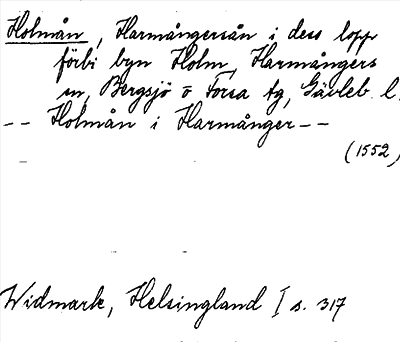 Holmån, Harmångersån i dess lopp
förbi byn Holm, Harmångers
sn, Bergsjö o Forsa tg, Gävleb. l.
-- Holmån i Harmånger --
(1552)
Widmark, Helsingland I s. 317